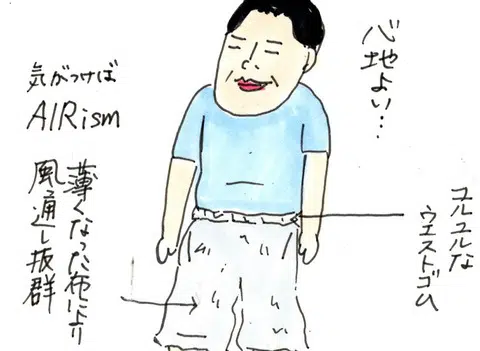 心地よい…
気がつけば
AIRism
薄くなった布により
風通し抜群
ユルユルな
ウエストゴム